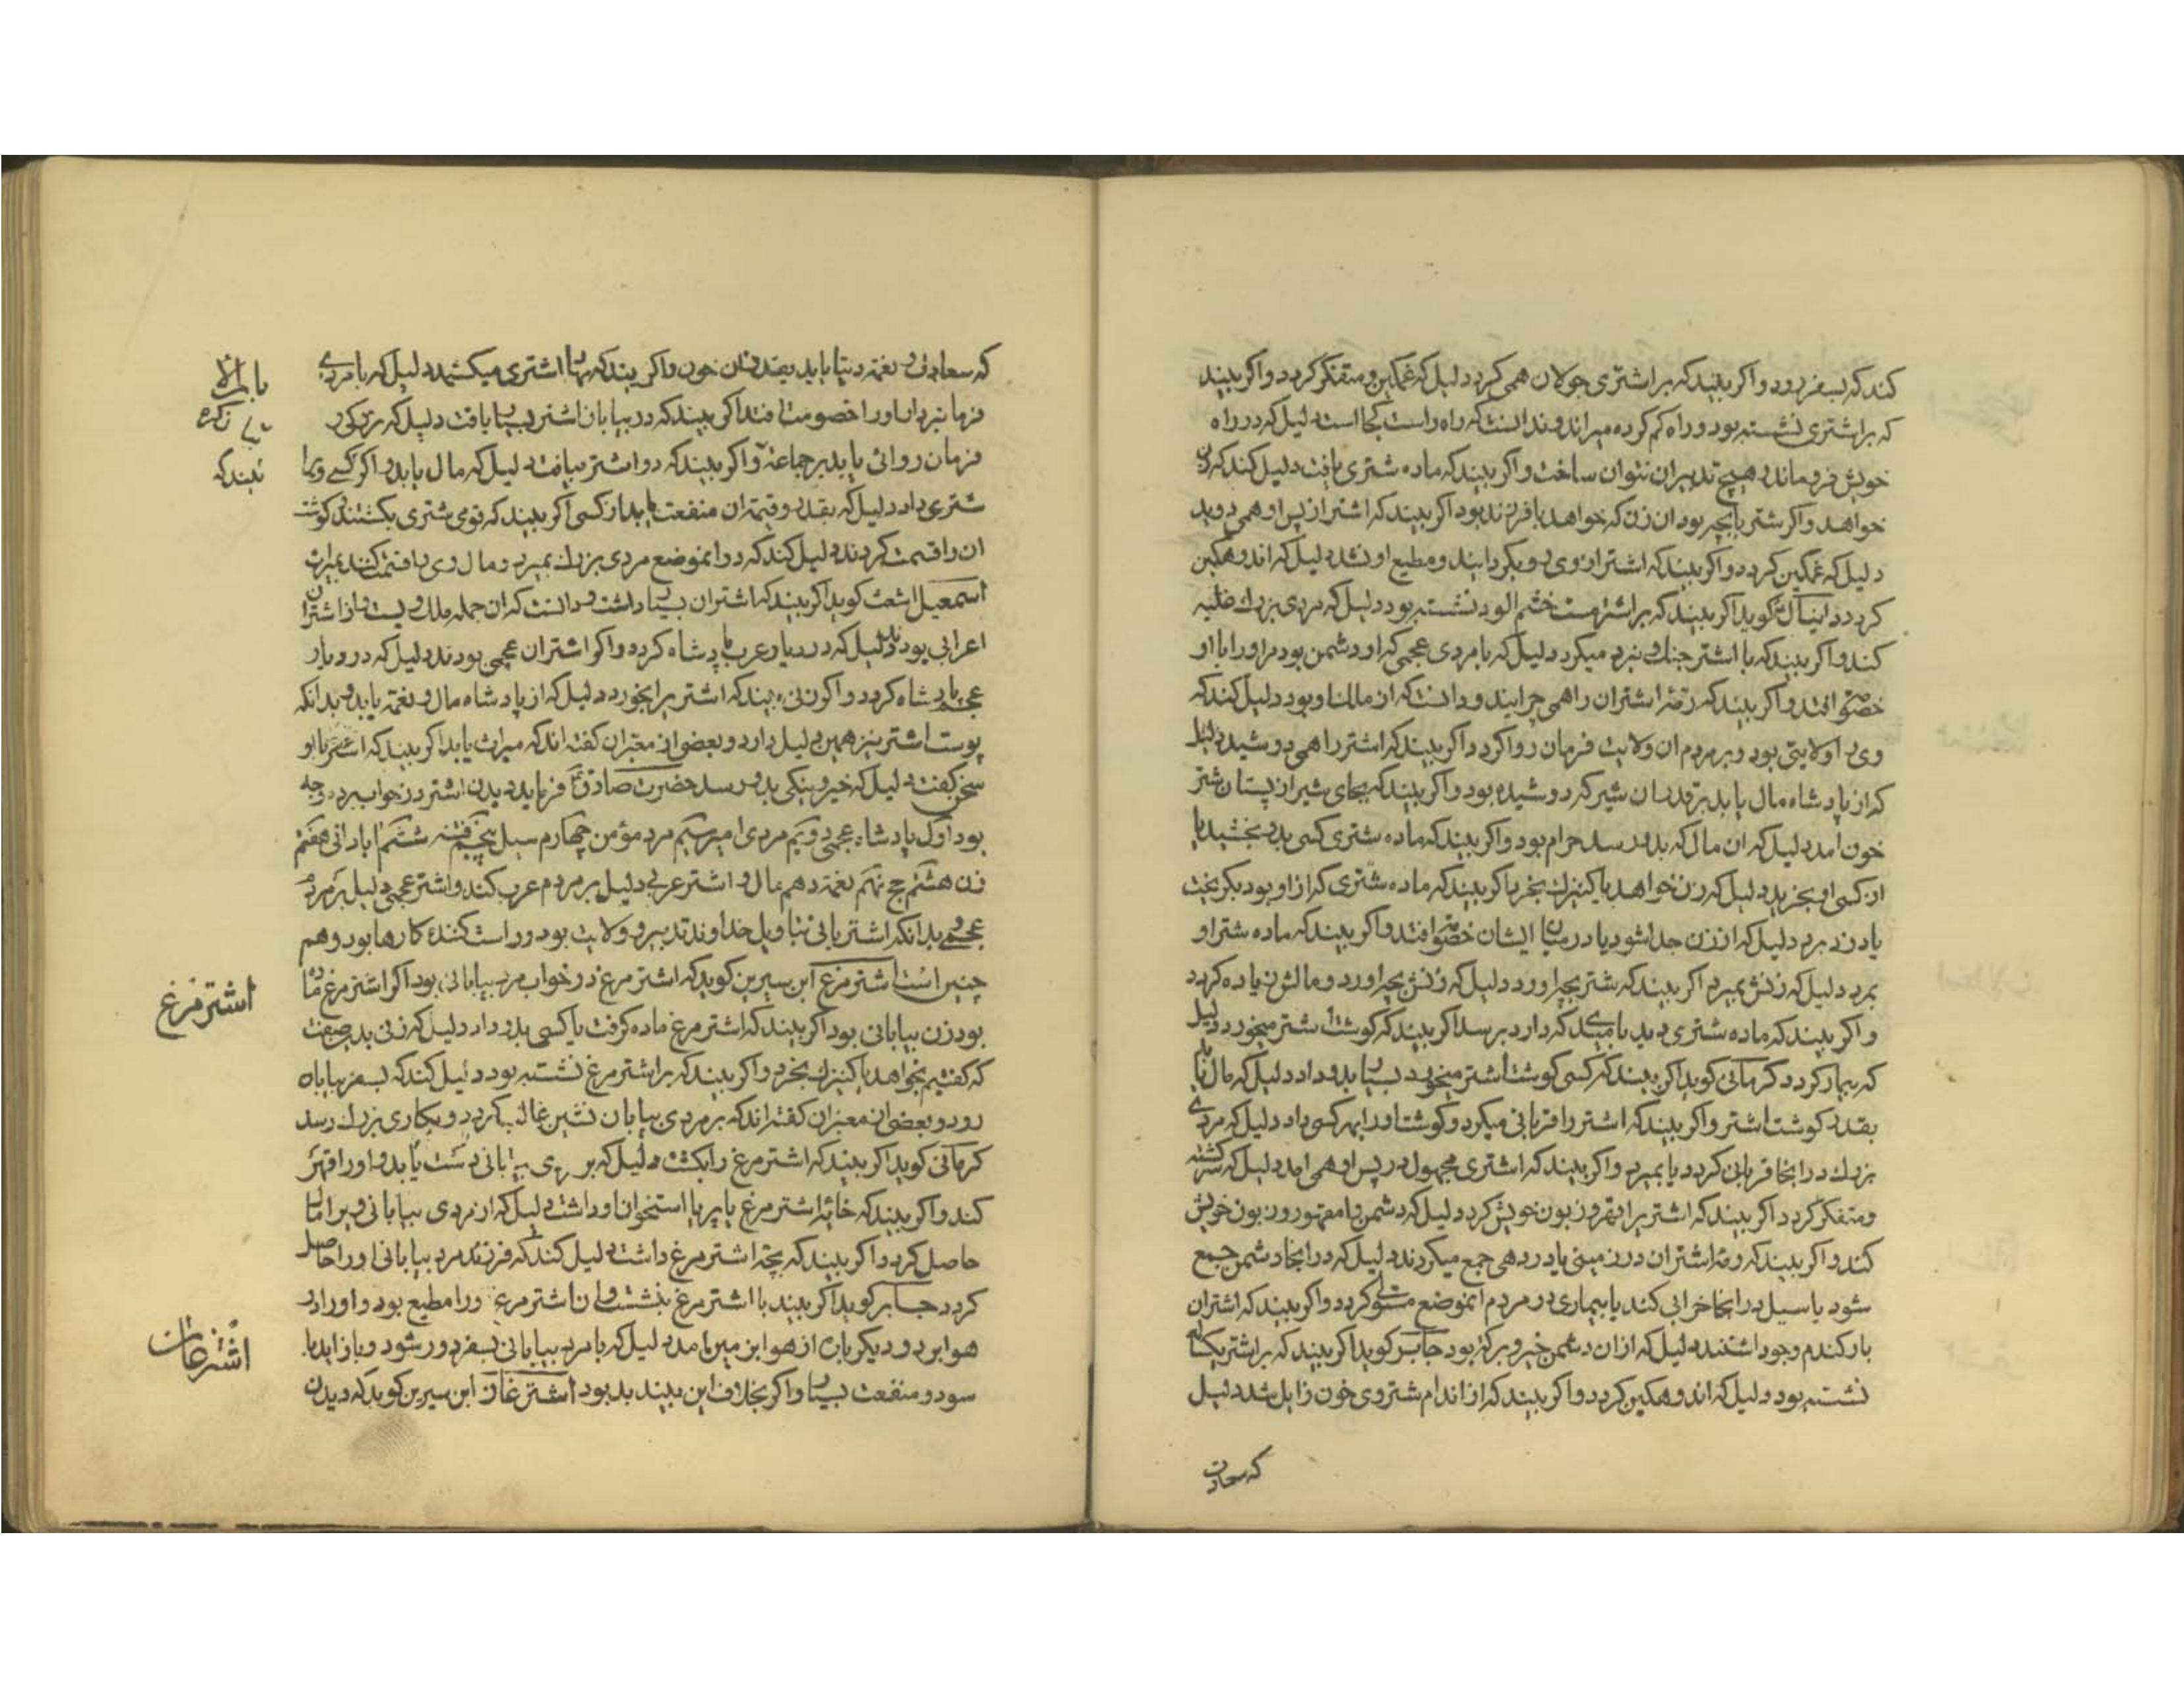 کند که بسفر رود و اکر بیند که بر اشتری جولان همی کرد دلیل که غمکین و متفکر کردد و اکر بیند
که بر اشتری نشسته بود و راه کم کرده میراند و ندانست که راه راست کجا است دلیل که در راه
خویش فروماند و هیچ تدبیر ان نتوان ساخت و اکر بیند که ماده شتری یافت دلیل کند که زن
خواهد و اکر شتر با بچه بود ان زن که خواهد با فرزند بود اکر بیند که اشتر از پس او همی دوید
دلیل که غمکین کردد و اکر بیند که اشتر از وی رو بکردانید و مطیع او نشد دلیل که اندوهکین
کردد دانیال کوید اکر بیند که بر اشتر مست خشم الود نشسته بود دلیل که مردی بزرك غلبه
کند و اکر بیند که با اشتر جنك و نبرد میکرد دلیل که با مردی عجمی که او دشمن بود مر او را با او
خصومت افتد و اکر بیند که رمه اشتران را همی چرانید و دانست که ان ملك او بود دلیل کند که
ویرا ولایتی بود و بر مردم ان ولایت فرمان روا کردد اکر بیند که اشتر را همی دوشید دلیل
که از پادشاه مال یابد بر قدر ان شیر که دوشیده بود و اکر بیند که بجای شیر از پستان شتر
خون امد دلیل که ان مال که بدو رسد حرام بود و اکر بیند که ماده شتری کسی بدو بخشید یا
از کسی او بخرید دلیل که زن خواهد یا کنیزك بخرد اکر بیند که ماده شتری که از او بود بکریخت
یا دزد برد دلیل که از زن جدا شود یا در میان ایشان خصومت افتد و اکر بیند که ماده شتر او
بمرد دلیل که زنش بمیرد اکر بیند که شتر بچه اورد دلیل که زنش بچه اورد و مالش زیاده کردد
و اکر بیند که ماده شتری دید بامیدی که دارد برسد اکر بیند که کوشت شتر میخورد دلیل
که بیمار کردد کرمانی کوید اکر بیند که کسی کوشت اشتر میخورد بسیار بدو داد دلیل که مال یابد
بقدر کوشت اشتر و اکر بیند که اشتر را قربانی میکرد و کوشت او را بهر کسی داد دلیل که مردی
بزرك در انجا قربانی کردد یا بمیرد و اکر بیند که اشتری مجهول در پس او همی امد دلیل که سرکشته
و متفکر کردد اکر بیند که اشتر را قهر و زبون خویش کرد دلیل که دشمن را مقهور و زبون خویش
کند و اکر بیند که رمه اشتران در زمینی یا در دهی جمع میکردند دلیل که در انجا دشمن جمع
شود یا سیل در انجا خرابی کند یا بیماری در مردم انموضع مستولی کردد و اکر بیند که اشتران
بار کندم و جو داشتند دلیل که از ان دشمن خیر و برکة بود جابر کوید اکر بیند که بر اشتر
نشسته بود دلیل که اندوهکین کردد و اکر بیند که از اندام شتر وی خون زایل شد دلیل
که سعادت
که سعادت و نعمة دنیا یابد بقدر ان خون و اکر بیند که مهار اشتری میکشید دلیل که با مردی
فرمانبردار او را خصومت افتد اکر بیند که در بیابان اشتر بسیار یافت دلیل که بزرکی و
فرمان روائی یابد بر جماعة و اکر بیند که دو اشتر بیافت دلیل که مال یابد و اکر کسی ویرا
شتری داد دلیل که بقدر و قیمة ان منفعت یابد از کسی اکر بیند که قومی شتری بکشتند و کوشت
ان را قسمت کردند دلیل کند که در انموضع مردی بزرك بمیرد و مال ویرا قسمت کنند بمیراث
اسمعیل اشعث کوید اکر بیند که اشتران بسیار داشت و دانست که ان جمله ملك ویست و ان اشتران
اعرابی بودند دلیل که در دیار عرب پادشاه کردد و اکر اشتران عجمی بودند دلیل که در دیار
عجم پادشاه کردد و اکر بیند که اشتر را بخورد دلیل که از پادشاه مال و نعمة یابد و بدانکه
پوست اشتر نیز همین دلیل دارد و بعضی از معبران کفته اند که میراث یابد اکر بیند که اشتر با او
سخن کفت دلیل که خیر و نیکی بدو رسد حضرت صادق ع فرماید دیدن اشتر در خواب برده وجه
بود اول پادشاه عجمی دویم مردی امیر سیم مرد مؤمن چهارم سیل پنجم فتنه ششم ابادانی هفتم
زن هشتم حج نهم نعمة دهم مال و اشتر عربی دلیل بر مردم عرب کند و اشتر عجمی دلیل بر مردم
عجمی بدانکه اشتربانی بتاویل خداوند تدبیر و ولایت بود و راست کنندهٔ کارها بود و هم
چنین است اشتر مرغ ابن سیرین کوید که اشتر مرغ در خواب مرد بیابانی بود اکر اشتر مرغ ماده
بود زن بیابانی بود اکر بیند که اشتر مرغ ماده کرفت یا کسی بدو داد دلیل که زنی بدینصفت
که کفتیم بخواهد یا کنیزك بخرد و اکر بیند که بر اشتر مرغ نشسته بود دلیل کند که بسفر بیابان
رود و بعضی از معبران کفته اند که بر مردی بیابان نشین غالب کردد و بکاری بزرك رسد
کرمانی کوید اکر بیند که اشتر مرغ را بکشت دلیل که بر مردی بیابانی دست یابد و او را قهر
کند و اکر بیند که خایه اشتر مرغ یا پر یا استخوان او داشت دلیل که از مردی بیابانی ویرا مال
حاصل کردد و اکر بیند که بچه اشتر مرغ داشت دلیل کند که فرزند مرد بیابانی او را حاصل
کردد جابر کوید اکر بیند با اشتر مرغ بنشست و ان اشتر مرغ ورا مطیع بود و او را در
هوا برد و دیکر بار از هوا بزمین امد دلیل که با مرد بیابانی بسفر دور شود و باز اید با
سود و منفعت بسیار و اکر بخلاف این بیند بد بود اشترغاز ابن سیرین کوید که دیدن
بیندکه
اشتر مرغ
اشترغاز